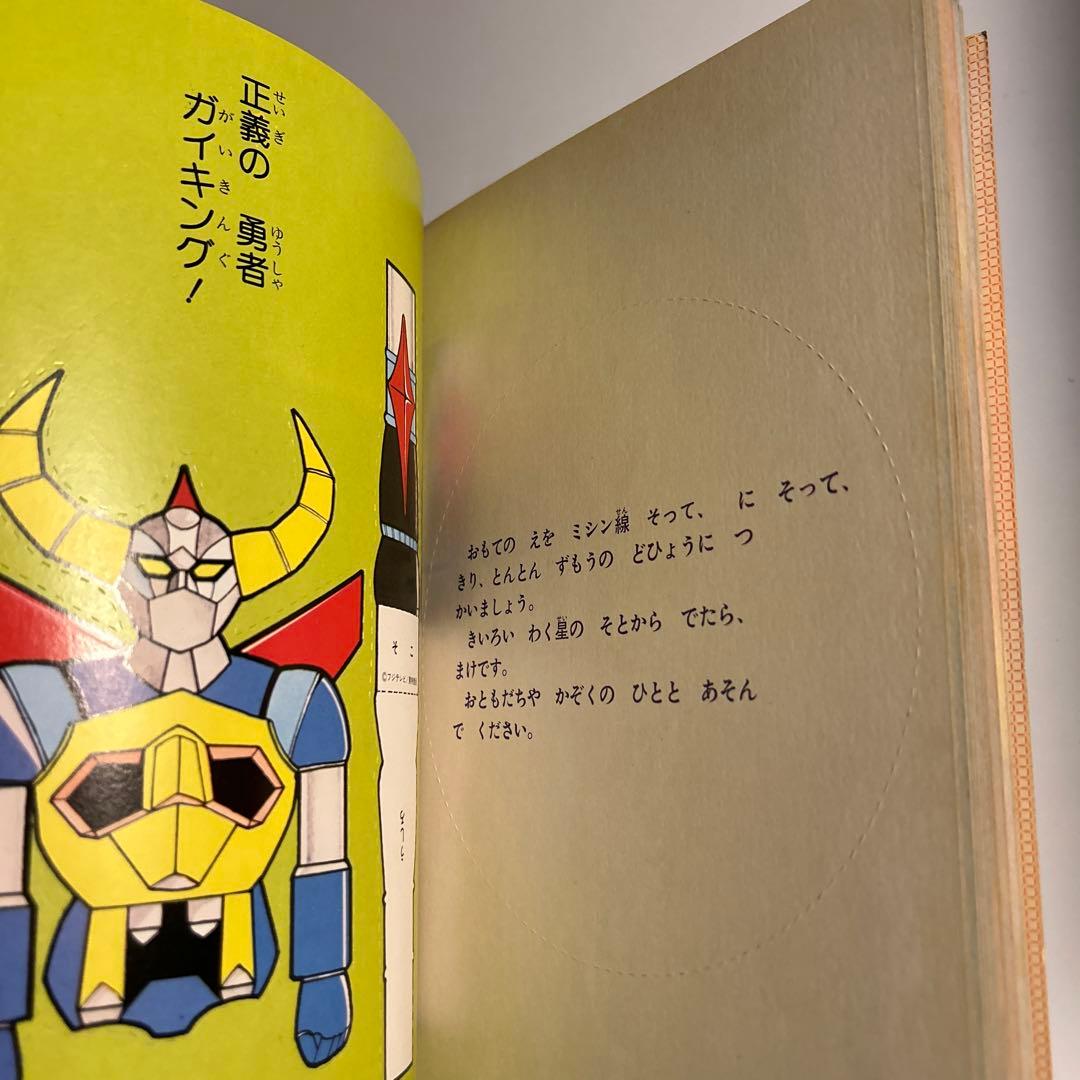 正義の 勇者
せいぎ ゆうしゃ
ガイキング!
がいきんぐ
そこ
©フジテレビ/東映動画
おもての えを ミシン線 そって、 に そって、
せん
きり、とんとん ずもうの どひょうに つ
かいましょう。
きいろい わく星の そとから でたら、
まけです。
おともだちや かぞくの ひとと あそん
で ください。